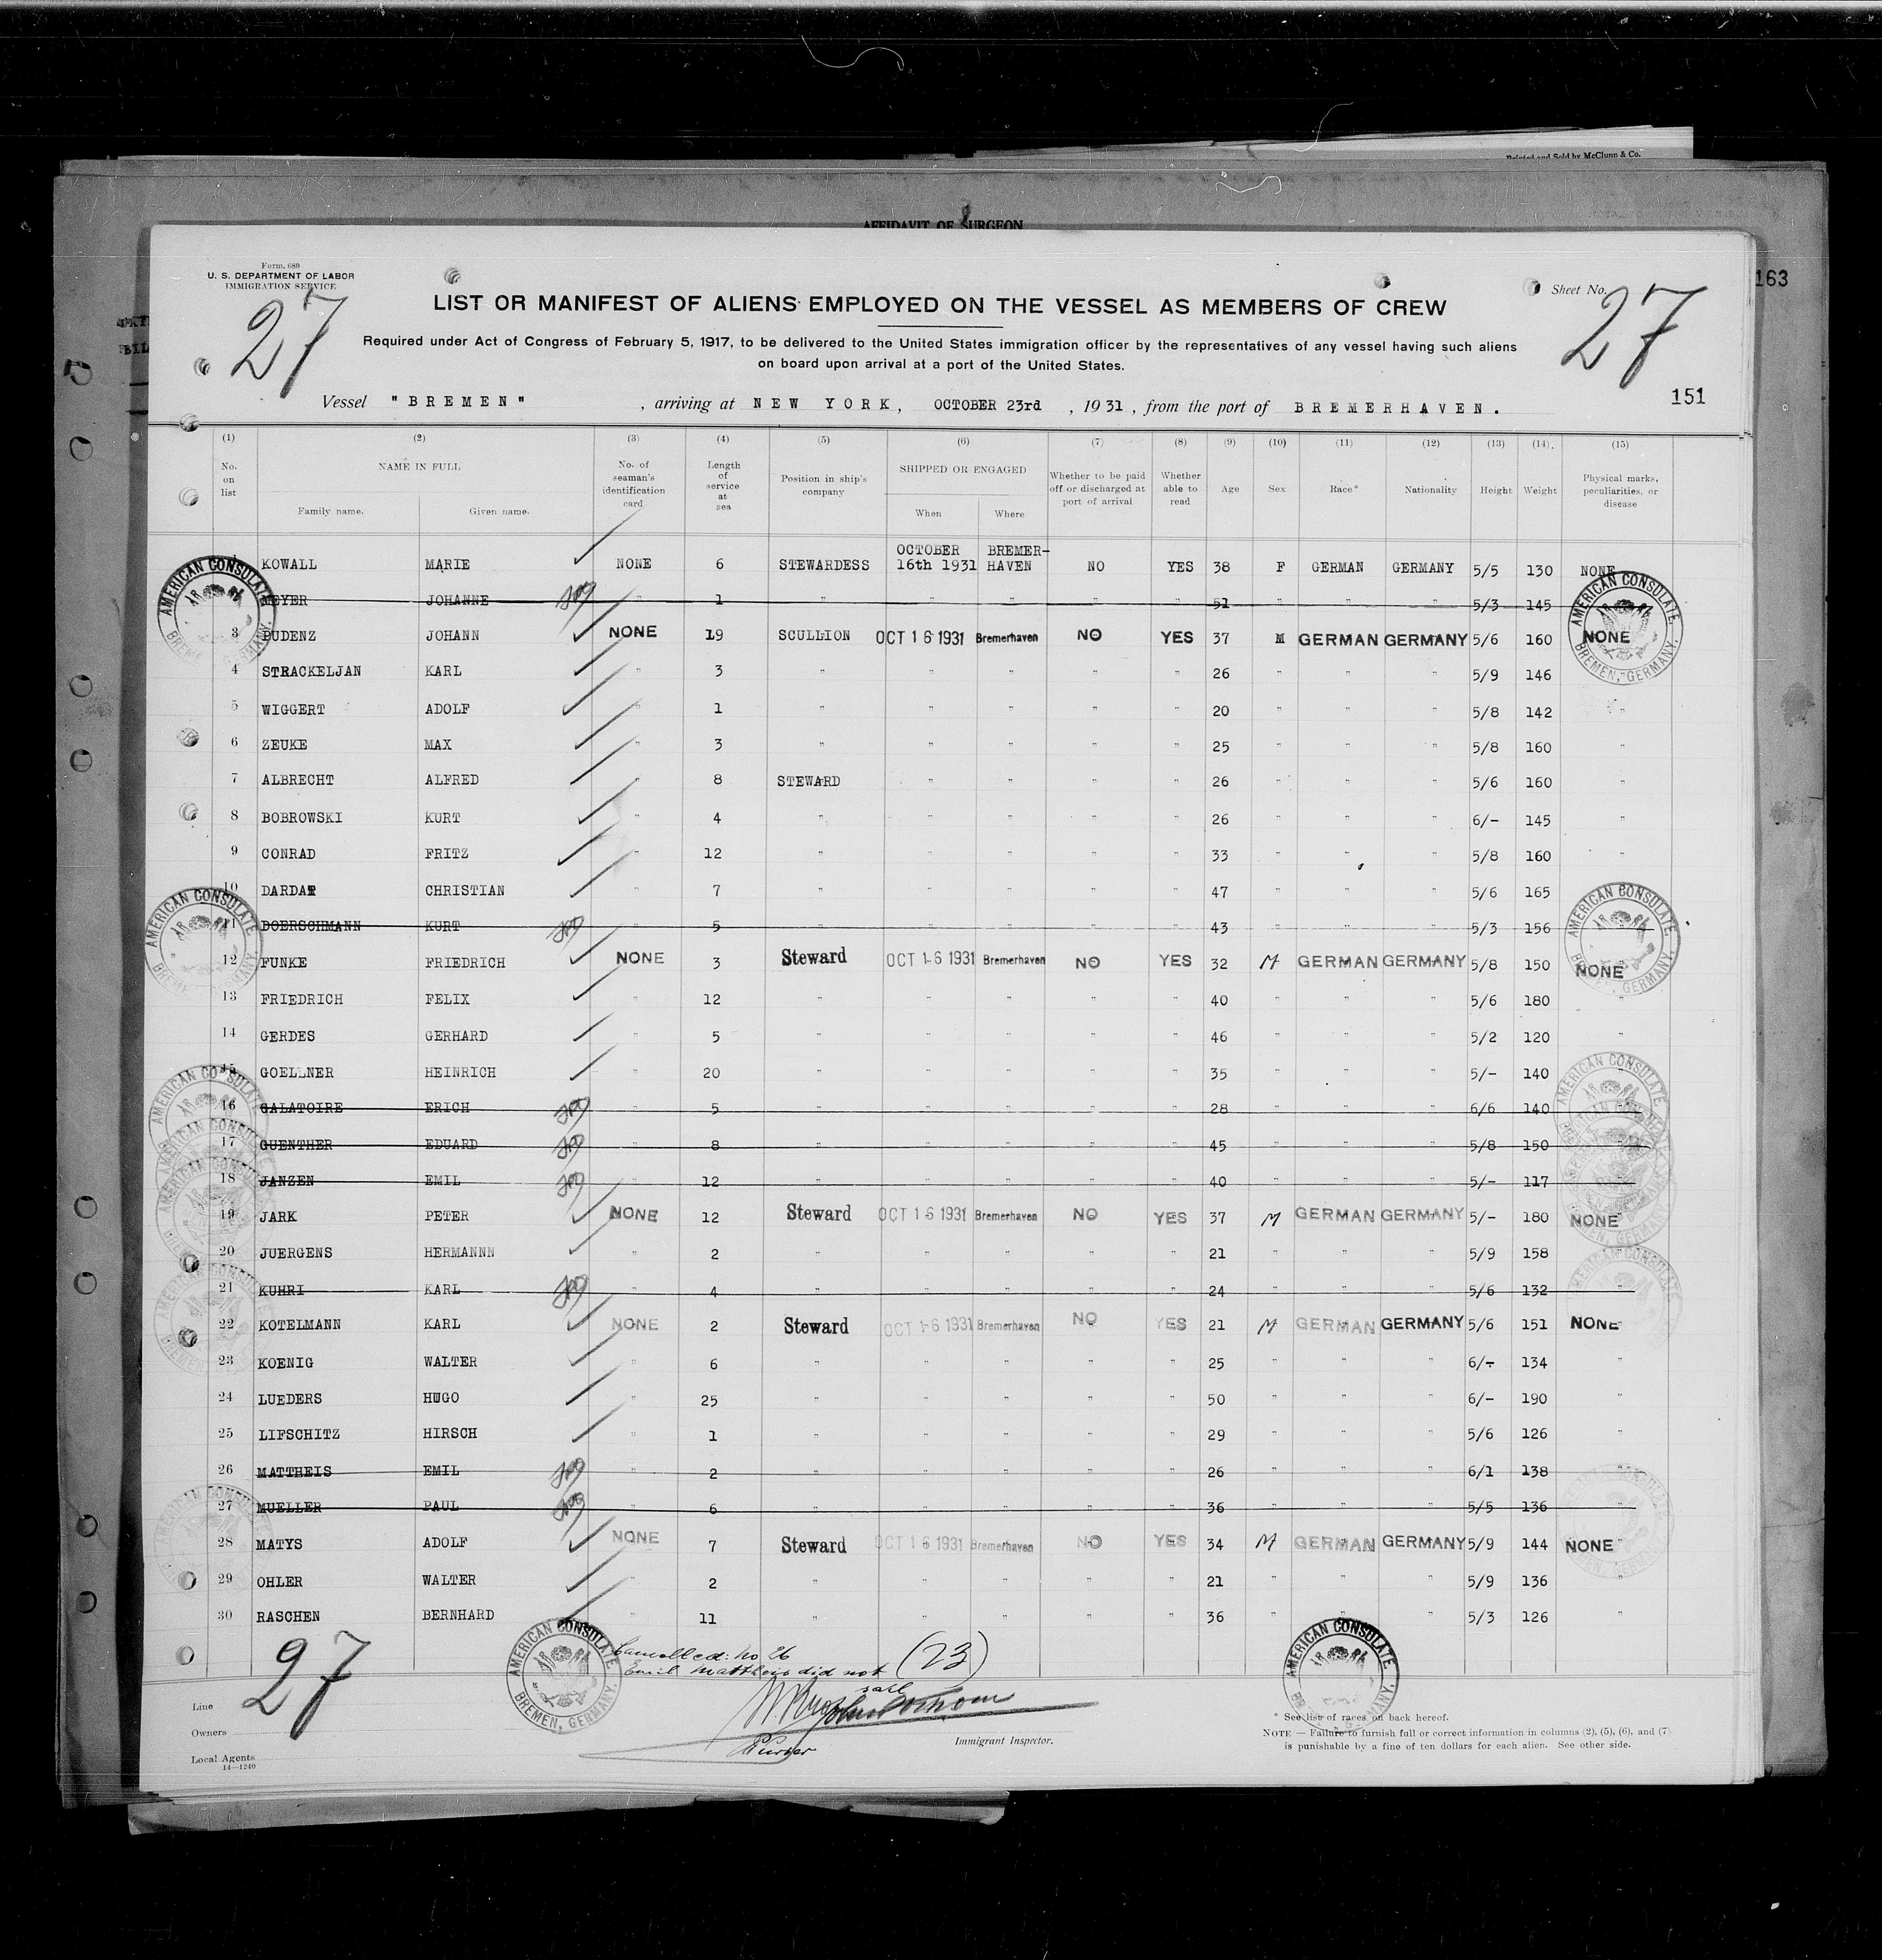 Printed and Sold by McClunn & Co.
AFFIDAVIT OF SURGEON
163
Form. 680
U. S. DEPARTMENT OF LABOR
IMMIGRATION SERVICE
27
Sheet No. 27
LIST OR MANIFEST OF ALIENS EMPLOYED ON THE VESSEL AS MEMBERS OF CREW
Required under Act of Congress of February 5, 1917, to be delivered to the United States immigration officer by the representatives of any vessel having such aliens
on board upon arrival at a port of the United States.
151
Vessel "BREMEN", arriving at NEW YORK, OCTOBER 23rd, 1931, from the port of BREMERHAVEN.
(1) (2) (3) (4) (5) (6) (7) (8) (9) (10) (11) (12) (13) (14) (15)
No. on list NAME IN FULL Family name. Given name. No. of seaman's identification card Length of service at sea Position in ship's company SHIPPED OR ENGAGED When Where Whether to be paid off or discharged at port of arrival Whether able to read Age Sex Race* Nationality Height Weight Physical marks, peculiarities, or disease
1 KOWALL MARIE NONE 6 STEWARDESS OCTOBER 16th 1931 BREMER-HAVEN NO YES 38 F GERMAN GERMANY 5/5 130 NONE
MEYER JOHANNE 1 " " " " " 51 " " " 5/3 145
3 BUDENZ JOHANN NONE 19 SCULLION OCT 16 1931 Bremerhaven NO YES 37 M GERMAN GERMANY 5/6 160 NONE
4 STRACKELJAN KARL " 3 " " " " " 26 " " " 5/9 146 "
5 WIGGERT ADOLF " 1 " " " " " 20 " " " 5/8 142 "
6 ZEUKE MAX " 3 " " " " " 25 " " " 5/8 160 "
7 ALBRECHT ALFRED " 8 STEWARD " " " " 26 " " " 5/6 160 "
8 BOBROWSKI KURT " 4 " " " " " 26 " " " 6/- 145 "
9 CONRAD FRITZ " 12 " " " " " 33 " " " 5/8 160 "
10 DARDAT CHRISTIAN " 7 " " " " " 47 " " " 5/6 165 "
11 DOERSCHMANN KURT " 5 " " " " " 43 " " " 5/3 156 "
12 FUNKE FRIEDRICH NONE 3 Steward OCT 16 1931 Bremerhaven NO YES 32 M GERMAN GERMANY 5/8 150 NONE
13 FRIEDRICH FELIX " 12 " " " " " 40 " " " 5/6 180 "
14 GERDES GERHARD " 5 " " " " " 46 " " " 5/2 120 "
15 GOELLNER HEINRICH " 20 " " " " " 35 " " " 5/- 140 "
16 GALATOIRE ERICH " 5 " " " " " 28 " " " 6/6 140 "
17 GUENTHER EDUARD " 8 " " " " " 45 " " " 5/8 150 "
18 JANZEN EMIL " 12 " " " " " 40 " " " 5/- 117 "
19 JARK PETER NONE 12 Steward OCT 16 1931 Bremerhaven NO YES 37 M GERMAN GERMANY 5/- 180 NONE
20 JUERGENS HERMANNN " 2 " " " " " 21 " " " 5/9 158 "
21 KUHRI KARL " 4 " " " " " 24 " " " 5/6 132 "
22 KOTELMANN KARL NONE 2 Steward OCT 16 1931 Bremerhaven NO YES 21 M GERMAN GERMANY 5/6 151 NONE
23 KOENIG WALTER " 6 " " " " " 25 " " " 6/- 134 "
24 LUEDERS HUGO " 25 " " " " " 50 " " " 6/- 190 "
25 LIFSCHITZ HIRSCH " 1 " " " " " 29 " " " 5/6 126 "
26 MATTHEIS EMIL " 2 " " " " " 26 " " " 6/1 138 "
27 MUELLER PAUL " 6 " " " " " 36 " " " 5/5 136 "
28 MATYS ADOLF NONE 7 Steward OCT 16 1931 Bremerhaven NO YES 34 M GERMAN GERMANY 5/9 144 NONE
29 OHLER WALTER " 2 " " " " " 21 " " " 5/9 136 "
30 RASCHEN BERNHARD " 11 " " " " " 36 " " " 5/3 126 "
AMERICAN CONSULATE BREMEN, GERMANY.
AMERICAN CONSULATE
Cancelled: No 26
Emil Mattheis did not sail
(23)
27
Purser
Immigrant Inspector.
Line
Owners
Local Agents
14—1240
* See list of races on back hereof.
NOTE — Failure to furnish full or correct information in columns (2), (5), (6), and (7)
is punishable by a fine of ten dollars for each alien. See other side.